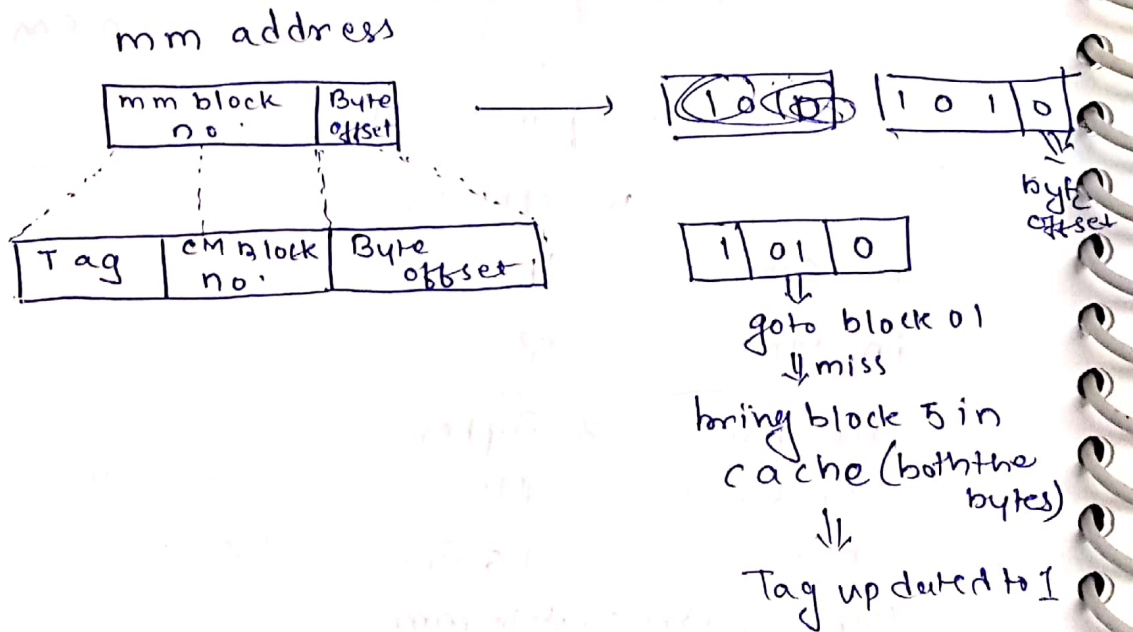 mm address
mm block no.
Byte offset
1 0 1 0
byte offset
Tag
CM Block no.
Byte offset
1 01 0
goto block 01
miss
bring block 5 in
cache (both the
bytes)
Tag updated to 1